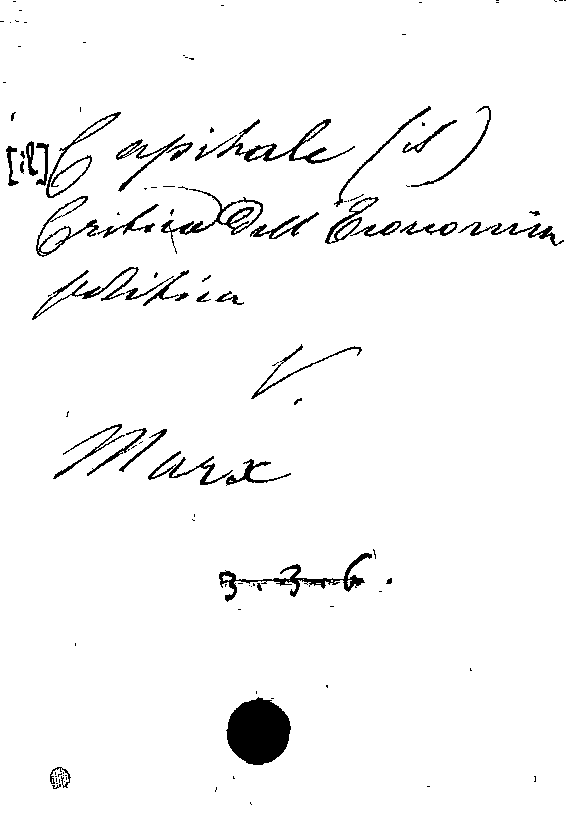 [il] Capitale (il)
Critica dell Economia
politica
V.
Marx
3.3.6.